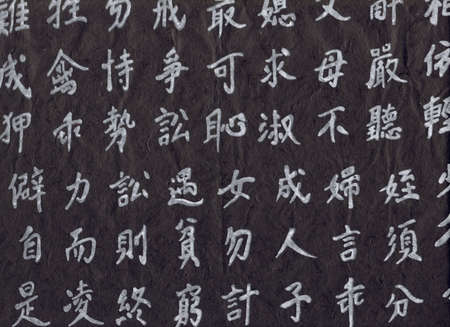 相依輕
嚴聽婦言乖
母不成人子
媳求淑女勿計
最可恥遇貧窮
戒爭訟訟則終
勿恃勢力而凌
牲禽乖僻自是
難成狎
姪須分